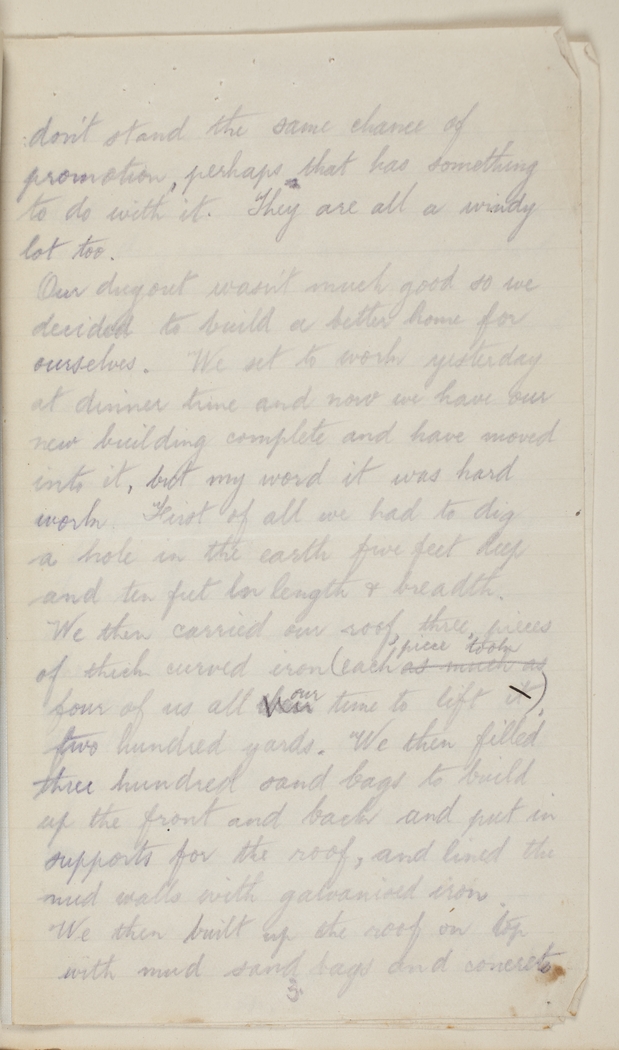 don't stand the same chance of
promotion, perhaps that has something
to do with it. They are all a windy
lot too.
Our dugout wasn't much good so we
decided to build a better home for
ourselves. We set to work yesterday
at dinner time and now we have our
new building complete and have moved
into it, but my word it was hard
work. First of all we had to dig
a hole in the earth five feet deep
and ten feet in length & breadth.
We then carried our roof, three pieces
of thick curved iron (each as much as
piece took
four of us all our time to lift it),
two hundred yards. We then filled
three hundred sand bags to build
up the front and back and put in
supports for the roof, and lined the
mud walls with galvanised iron.
We then built up the roof on top
with mud sand bags and concrete
3.